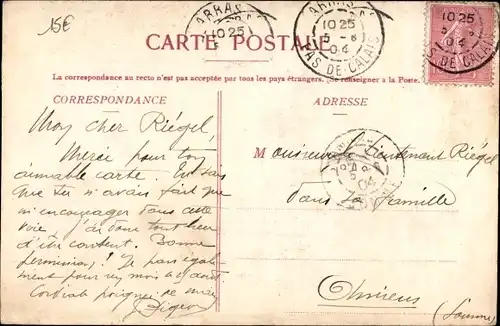 15€
ARRAS
10 25
ARRAS
10 25
5 - 8
04
PAS DE CALAIS
10 25
5 - 8
04
PAS DE CALAIS
CARTE POSTALE
La correspondance au recto n'est pas acceptée par tous les pays étrangers. (Se renseigner à la Poste.)
CORRESPONDANCE
ADRESSE
Mon cher Riégel,
Merci pour ton
aimable carte. Tu sais
que tu n'avais fait que
m'encourager dans cette
voie
d'être content. Bonne
permission! Je pars égale-
ment pour un mois le 15 août
Cordiale poignée de main
Monsieur le Lieutenant Riégel
Dans sa famille
04
Amiens
(Somme)